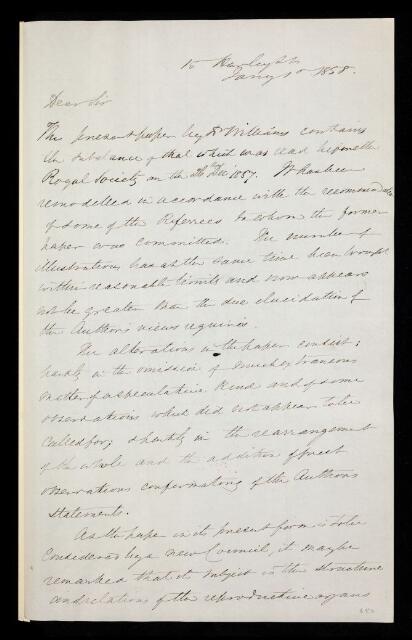 10 Harley St
Jany 1st 1858.
Dear Sir
The present paper by Dr Williams contains
the substance of that which was read before the
Royal Society on the Dec 1857. It has been
remodelled in accordance with the recommendation
of some of the Referees to whom the former
paper was committed. The number of
illustrations has at the same time been brought
within reasonable limits and now appears
not be greater than the due elucidation of
the Author's views requires.
The alterations in the paper consist;
partly in the omission of much extraneous
matter of a speculative kind and of some
observations which did not appear to be
called for; & partly in the rearrangement
of the whole and the addition of fresh
observations confirmatory of the Authors
statements.
As the paper in its present form is to be
considered by a new Council, it may be
remarked that its subject is the structure
and relations of the reproductive organs